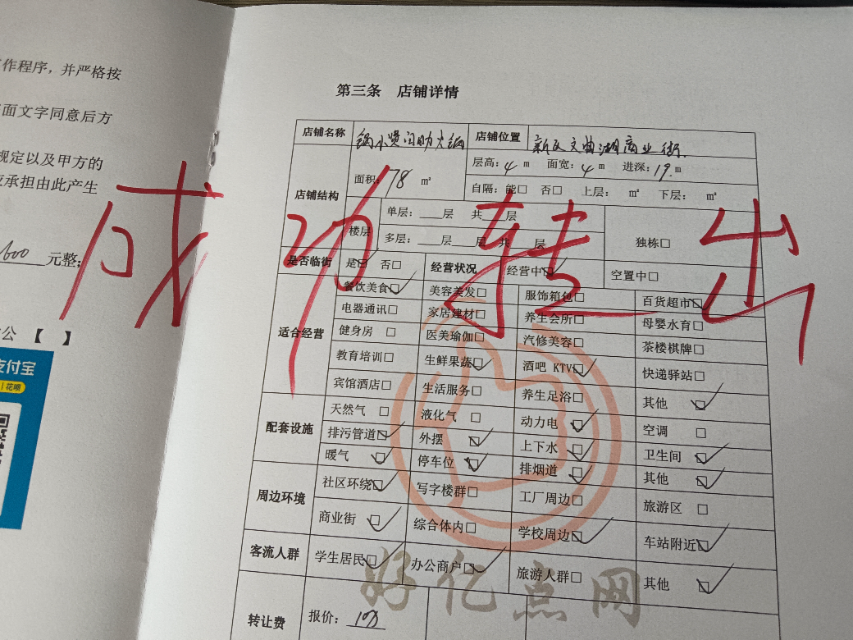 作程序，并严格按
面文字同意后方
规定以及甲方的
应承担由此产生
元整;
公 【 】
支付宝
花呗
第三条 店铺详情
店铺名称 店铺位置 新区文曲湖商业街.
店铺结构 面积: 78 m² 层高: 4 m 面宽: 4 m 进深: 19 m
自隔: 能□ 否□ 上层: m² 下层: m²
楼层 单层: ____层 共__层 独栋□
多层: ____层__层 共 层
是否临街 是☑ 否□ 经营状况 经营中☑ 空置中□
适合经营 餐饮美食☑ 美容美发□ 服饰箱包□ 百货超市☑
电器通讯□ 家居建材□ 养生会所□ 母婴水育□
健身房 □ 医美瑜伽□ 汽修美容□ 茶楼棋牌□
教育培训□ 生鲜果蔬☑ 酒吧 KTV☑ 快递驿站□
宾馆酒店□ 生活服务□ 养生足浴□ 其他 ☑
配套设施 天然气 □ 液化气 □ 动力电 ☑ 空调 □
排污管道☑ 外摆 ☑ 上下水 ☑ 卫生间 ☑
暖气 ☑ 停车位 ☑ 排烟道 ☑ 其他 ☑
周边环境 社区环绕☑ 写字楼群□ 工厂周边□ 旅游区 □
商业街 ☑ 综合体内□ 学校周边☑ 车站附近☑
客流人群 学生居民☑ 办公商户☑ 旅游人群□ 其他 ☑
转让费 报价:
成功转出
好亿点网